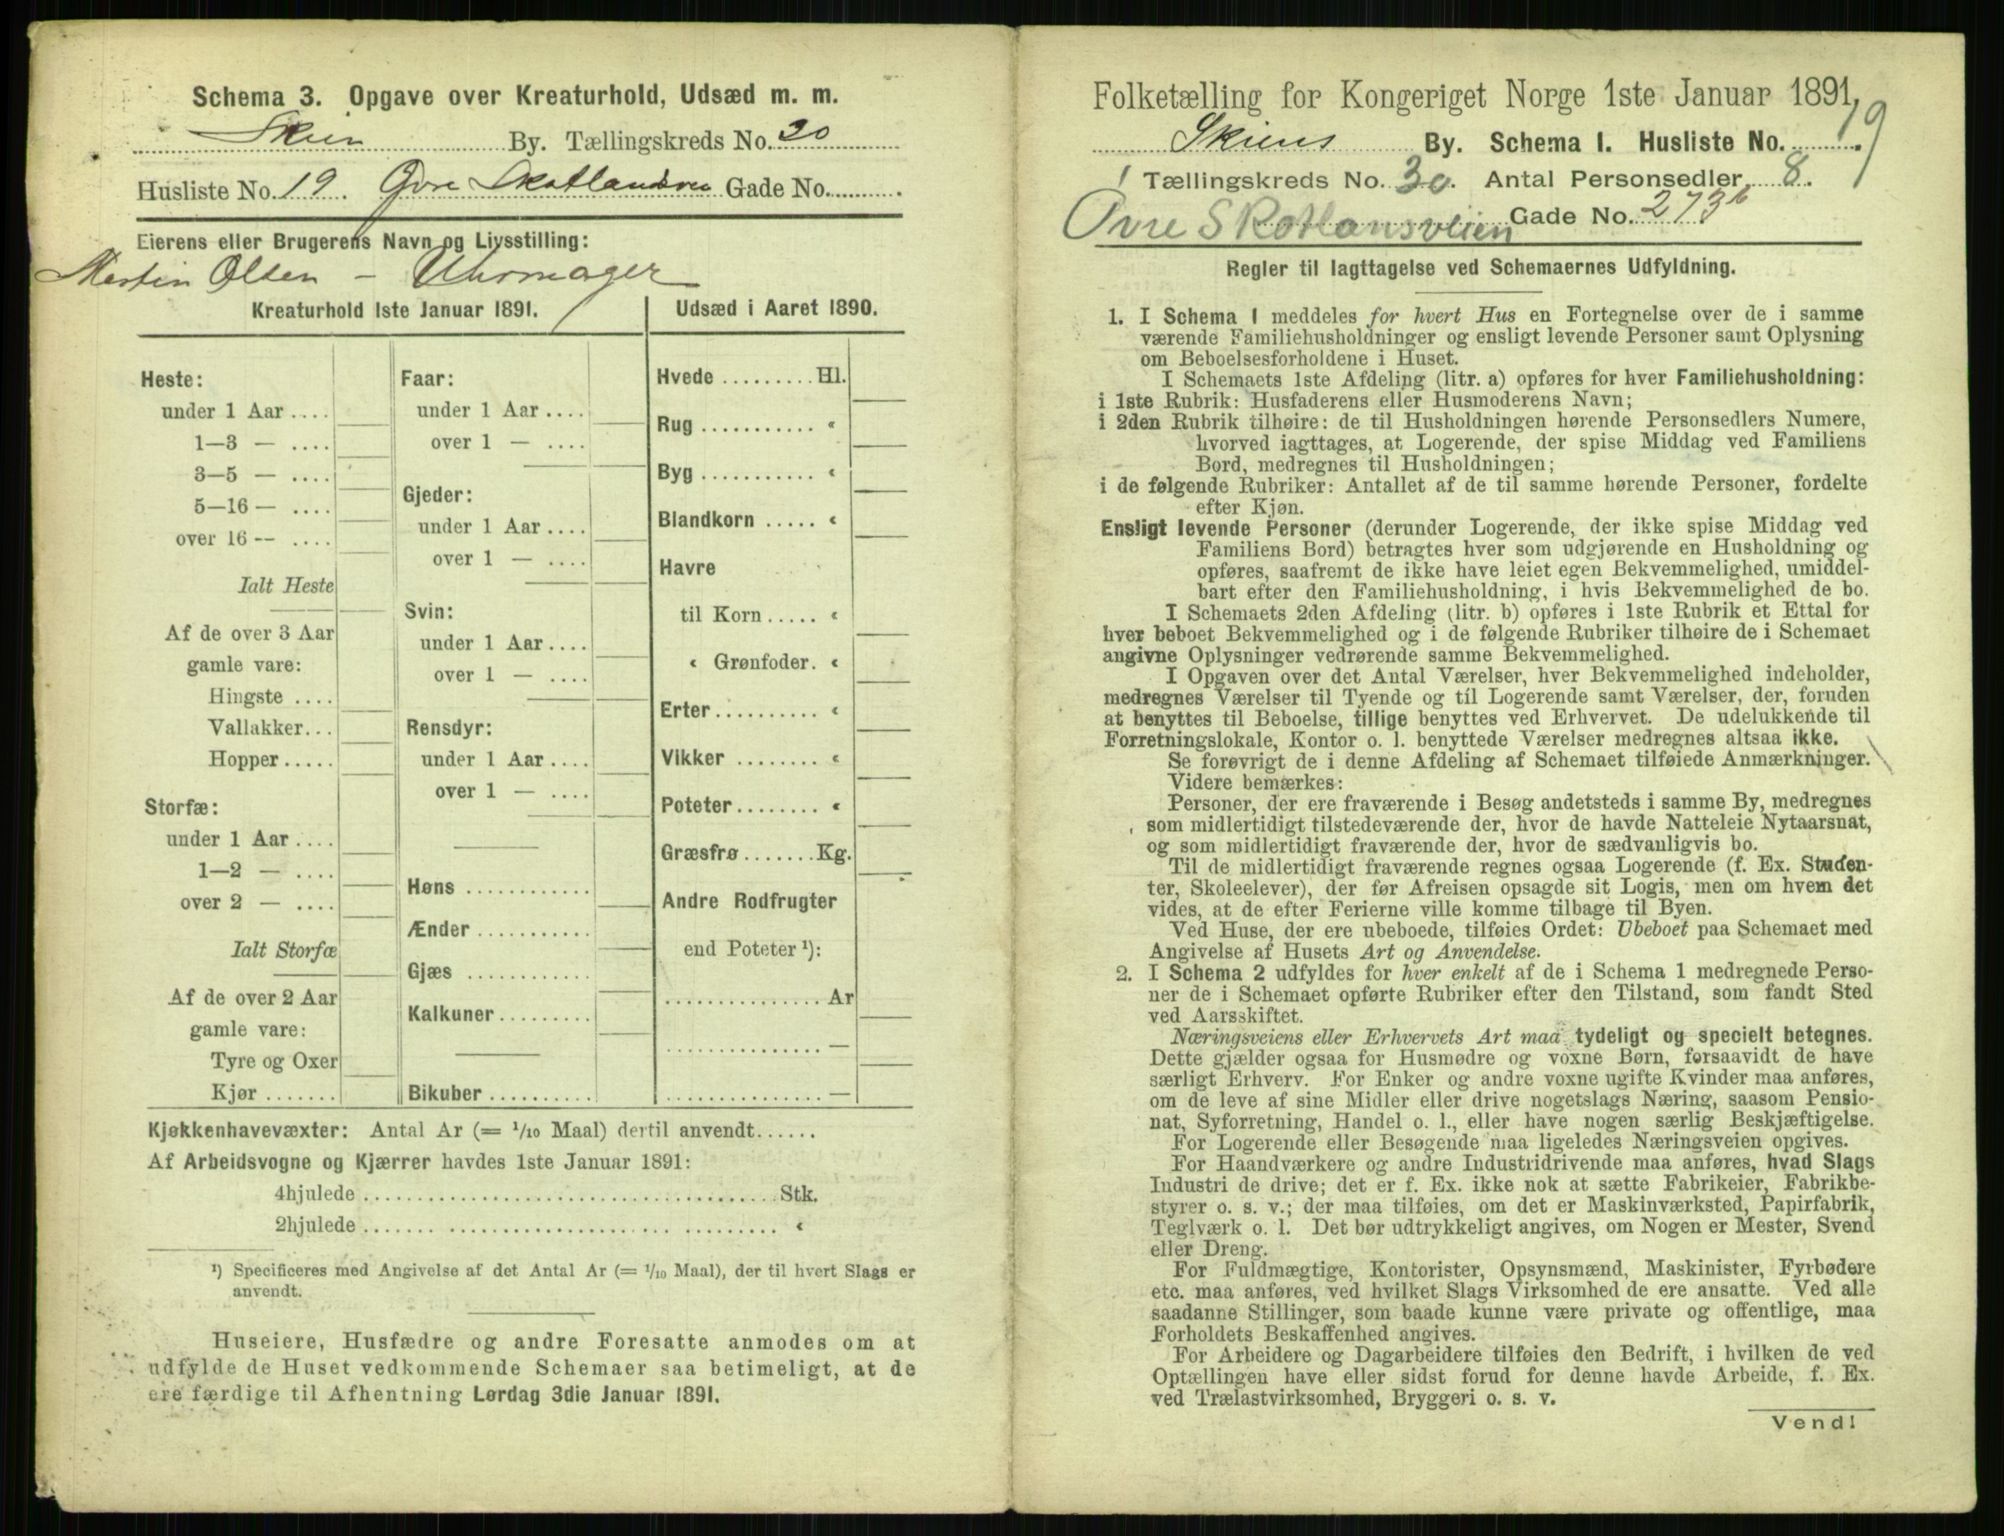 Schema 3. Opgave over Kreaturhold, Udsæd m. m.
Skien By. Tællingskreds No. 30
Husliste No. 19. Øvre Skotlandsvei Gade No.
Eierens eller Brugerens Navn og Livsstilling:
Martin Olsen – Uhrmager
Kreaturhold 1ste Januar 1891.
Heste:
under 1 Aar ....
1—3 — ....
3—5 — ....
5—16 — ....
over 16 -- ....
Ialt Heste
Af de over 3 Aar
gamle vare:
Hingste ....
Vallakker...
Hopper.....
Storfæ:
under 1 Aar ....
1—2 — ....
over 2 — ....
Ialt Storfæ
Af de over 2 Aar
gamle vare:
Tyre og Oxer
Kjør .......
Faar:
under 1 Aar ....
over 1 — ....
Gjeder:
under 1 Aar ....
over 1 — ....
Svin:
under 1 Aar ....
over 1 — ....
Rensdyr:
under 1 Aar ....
over 1 — ....
Høns ............
Ænder ...........
Gjæs ............
Kalkuner.........
Bikuber ..........
Udsæd i Aaret 1890.
Hvede ......... Hl.
Rug ........... «
Byg ........... «
Blandkorn ..... «
Havre
til Korn ..... «
« Grønfoder. «
Erter.......... «
Vikker ........ «
Poteter........ «
Græsfrø.......Kg.
Andre Rodfrugter
end Poteter ¹):
............... Ar
............... —
............... —
Kjøkkenhavevæxter: Antal Ar (= 1/10 Maal) dertil anvendt......
Af Arbeidsvogne og Kjærrer havdes 1ste Januar 1891:
4hjulede ........................................ Stk.
2hjulede ........................................ «
¹) Specificeres med Angivelse af det Antal Ar (= 1/10 Maal), der til hvert Slags er
anvendt.
Huseiere, Husfædre og andre Foresatte anmodes om at
udfylde de Huset vedkommende Schemaer saa betimeligt, at de
ere færdige til Afhentning Lørdag 3die Januar 1891.
Folketælling for Kongeriget Norge 1ste Januar 1891.
Skiens By. Schema I. Husliste No. 19
Tællingskreds No. 30. Antal Personsedler 8.
Øvre Skotlansveien Gade No. 273b
Regler til Iagttagelse ved Schemaernes Udfyldning.
1. I Schema 1 meddeles for hvert Hus en Fortegnelse over de i samme
værende Familiehusholdninger og ensligt levende Personer samt Oplysning
om Beboelsesforholdene i Huset.
I Schemaets 1ste Afdeling (litr. a) opføres for hver Familiehusholdning:
i 1ste Rubrik: Husfaderens eller Husmoderens Navn;
i 2den Rubrik tilhøire: de til Husholdningen hørende Personsedlers Numere,
hvorved iagttages, at Logerende, der spise Middag ved Familiens
Bord, medregnes til Husholdningen;
i de følgende Rubriker: Antallet af de til samme hørende Personer, fordelte
efter Kjøn.
Ensligt levende Personer (derunder Logerende, der ikke spise Middag ved
Familiens Bord) betragtes hver som udgjørende en Husholdning og
opføres, saafremt de ikke have leiet egen Bekvemmelighed, umiddel-
bart efter den Familiehusholdning, i hvis Bekvemmelighed de bo.
I Schemaets 2den Afdeling (litr. b) opføres i 1ste Rubrik et Ettal for
hver beboet Bekvemmelighed og i de følgende Rubriker tilhøire de i Schemaet
angivne Oplysninger vedrørende samme Bekvemmelighed.
I Opgaven over det Antal Værelser, hver Bekvemmelighed indeholder,
medregnes Værelser til Tyende og til Logerende samt Værelser, der, foruden
at benyttes til Beboelse, tillige benyttes ved Erhvervet. De udelukkende til
Forretningslokale, Kontor o. l. benyttede Værelser medregnes altsaa ikke.
Se forøvrigt de i denne Afdeling af Schemaet tilføiede Anmærkninger.
Videre bemærkes:
Personer, der ere fraværende i Besøg andetsteds i samme By, medregnes
som midlertidigt tilstedeværende der, hvor de havde Natteleie Nytaarsnat,
og som midlertidigt fraværende der, hvor de sædvanligvis bo.
Til de midlertidigt fraværende regnes ogsaa Logerende (f. Ex. Studen-
ter, Skoleelever), der før Afreisen opsagde sit Logis, men om hvem det
vides, at de efter Ferierne ville komme tilbage til Byen.
Ved Huse, der ere ubeboede, tilføies Ordet: Ubeboet paa Schemaet med
Angivelse af Husets Art og Anvendelse.
2. I Schema 2 udfyldes for hver enkelt af de i Schema 1 medregnede Perso-
ner de i Schemaet opførte Rubriker efter den Tilstand, som fandt Sted
ved Aarsskiftet.
Næringsveiens eller Erhvervets Art maa tydeligt og specielt betegnes.
Dette gjælder ogsaa for Husmødre og voxne Børn, forsaavidt de have
særligt Erhverv. For Enker og andre voxne ugifte Kvinder maa anføres,
om de leve af sine Midler eller drive nogetslags Næring, saasom Pensio-
nat, Syforretning, Handel o. l., eller have nogen særlig Beskjæftigelse.
For Logerende eller Besøgende maa ligeledes Næringsveien opgives.
For Haandværkere og andre Industridrivende maa anføres, hvad Slags
Industri de drive; det er f. Ex. ikke nok at sætte Fabrikeier, Fabrikbe-
styrer o. s. v.; der maa tilføies, om det er Maskinværksted, Papirfabrik,
Teglværk o. l. Det bør udtrykkeligt angives, om Nogen er Mester, Svend
eller Dreng.
For Fuldmægtige, Kontorister, Opsynsmænd, Maskinister, Fyrbødere
etc. maa anføres, ved hvilket Slags Virksomhed de ere ansatte. Ved alle
saadanne Stillinger, som baade kunne være private og offentlige, maa
Forholdets Beskaffenhed angives.
For Arbeidere og Dagarbeidere tilføies den Bedrift, i hvilken de ved
Optællingen have eller sidst forud for denne havde Arbeide, f. Ex.
ved Trælastvirksomhed, Bryggeri o. s. v.
Vend!